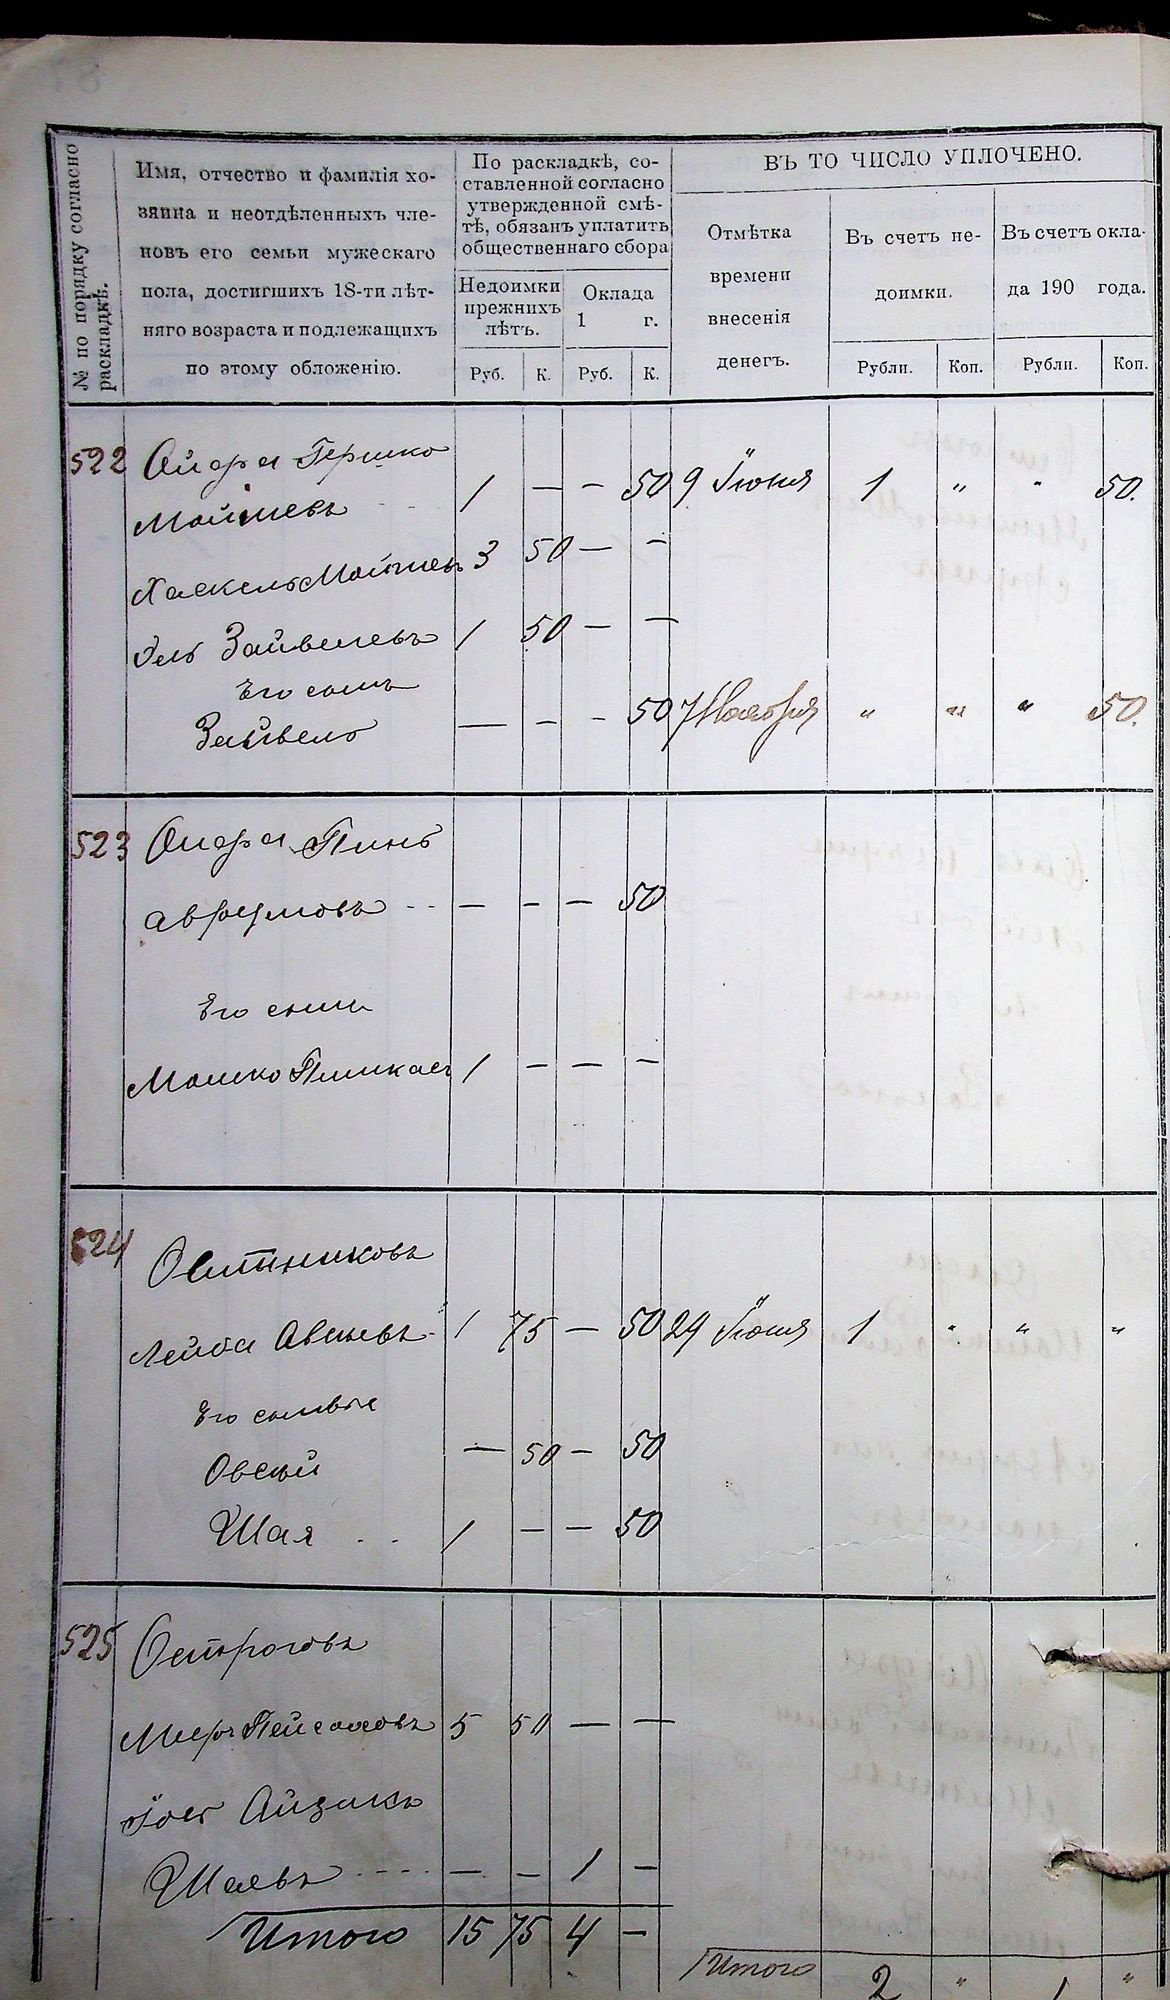 № по порядку согласно
раскладкѣ.
Имя, отчество и фамилія хо-
зяина и неотдѣленныхъ чле-
новъ его семьи мужескаго
пола, достигшихъ 18-ти лѣт-
няго возраста и подлежащихъ
по этому обложенію.
По раскладкѣ, со-
ставленной согласно
утвержденной смѣ-
тѣ, обязанъ уплатить
общественнаго сбора
Недоимки
прежнихъ
лѣтъ.
Оклада
1 г.
Руб. К. Руб. К.
ВЪ ТО ЧИСЛО УПЛОЧЕНО.
Отмѣтка
времени
внесенія
денегъ.
Въ счетъ не-
доимки.
Въ счетъ окла-
да 190 года.
Рубли. Коп. Рубли. Коп.
522 Гершко
Мошиевъ 1 — — 50 9 Іюня 1 „ „ 50.
Хаскель Мошиевъ 3 50 — —
Зайвелевъ 1 50 — —
Его сынъ
Зайвель — — — 50 7 Ноября „ „ „ 50.
523 Пинь
Аврумовъ — — — 50
Его сынъ
Мошко Пинкас 1 — — —
524
Лейба 1 75 — 50 29 Іюня 1 „ „ „
Его сыновья
Овсѣй — 50 — 50
Шая 1 — — 50
525 Остроговъ
Пейсаховъ 5 50 — —
Айзикъ
Шаевъ — — 1 —
Итого 15 75 4 —
Итого 2 „ 1 „